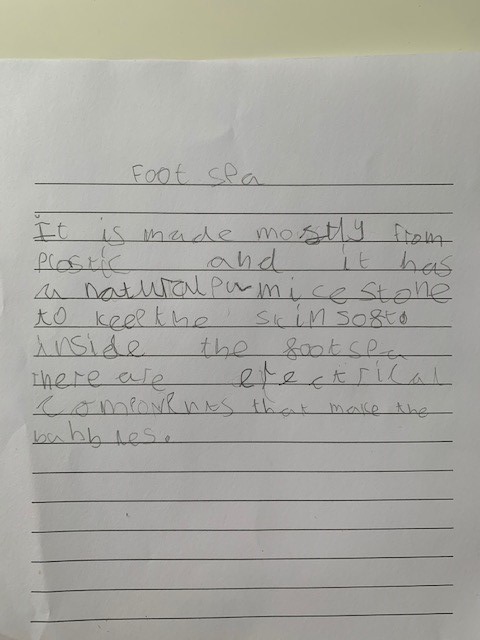 Foot spa
It is made mostly from
plastic and it has
a natural pumice stone
to keep the skin soft.
inside the foot spa
there are electrical
components that make the
bubbles.